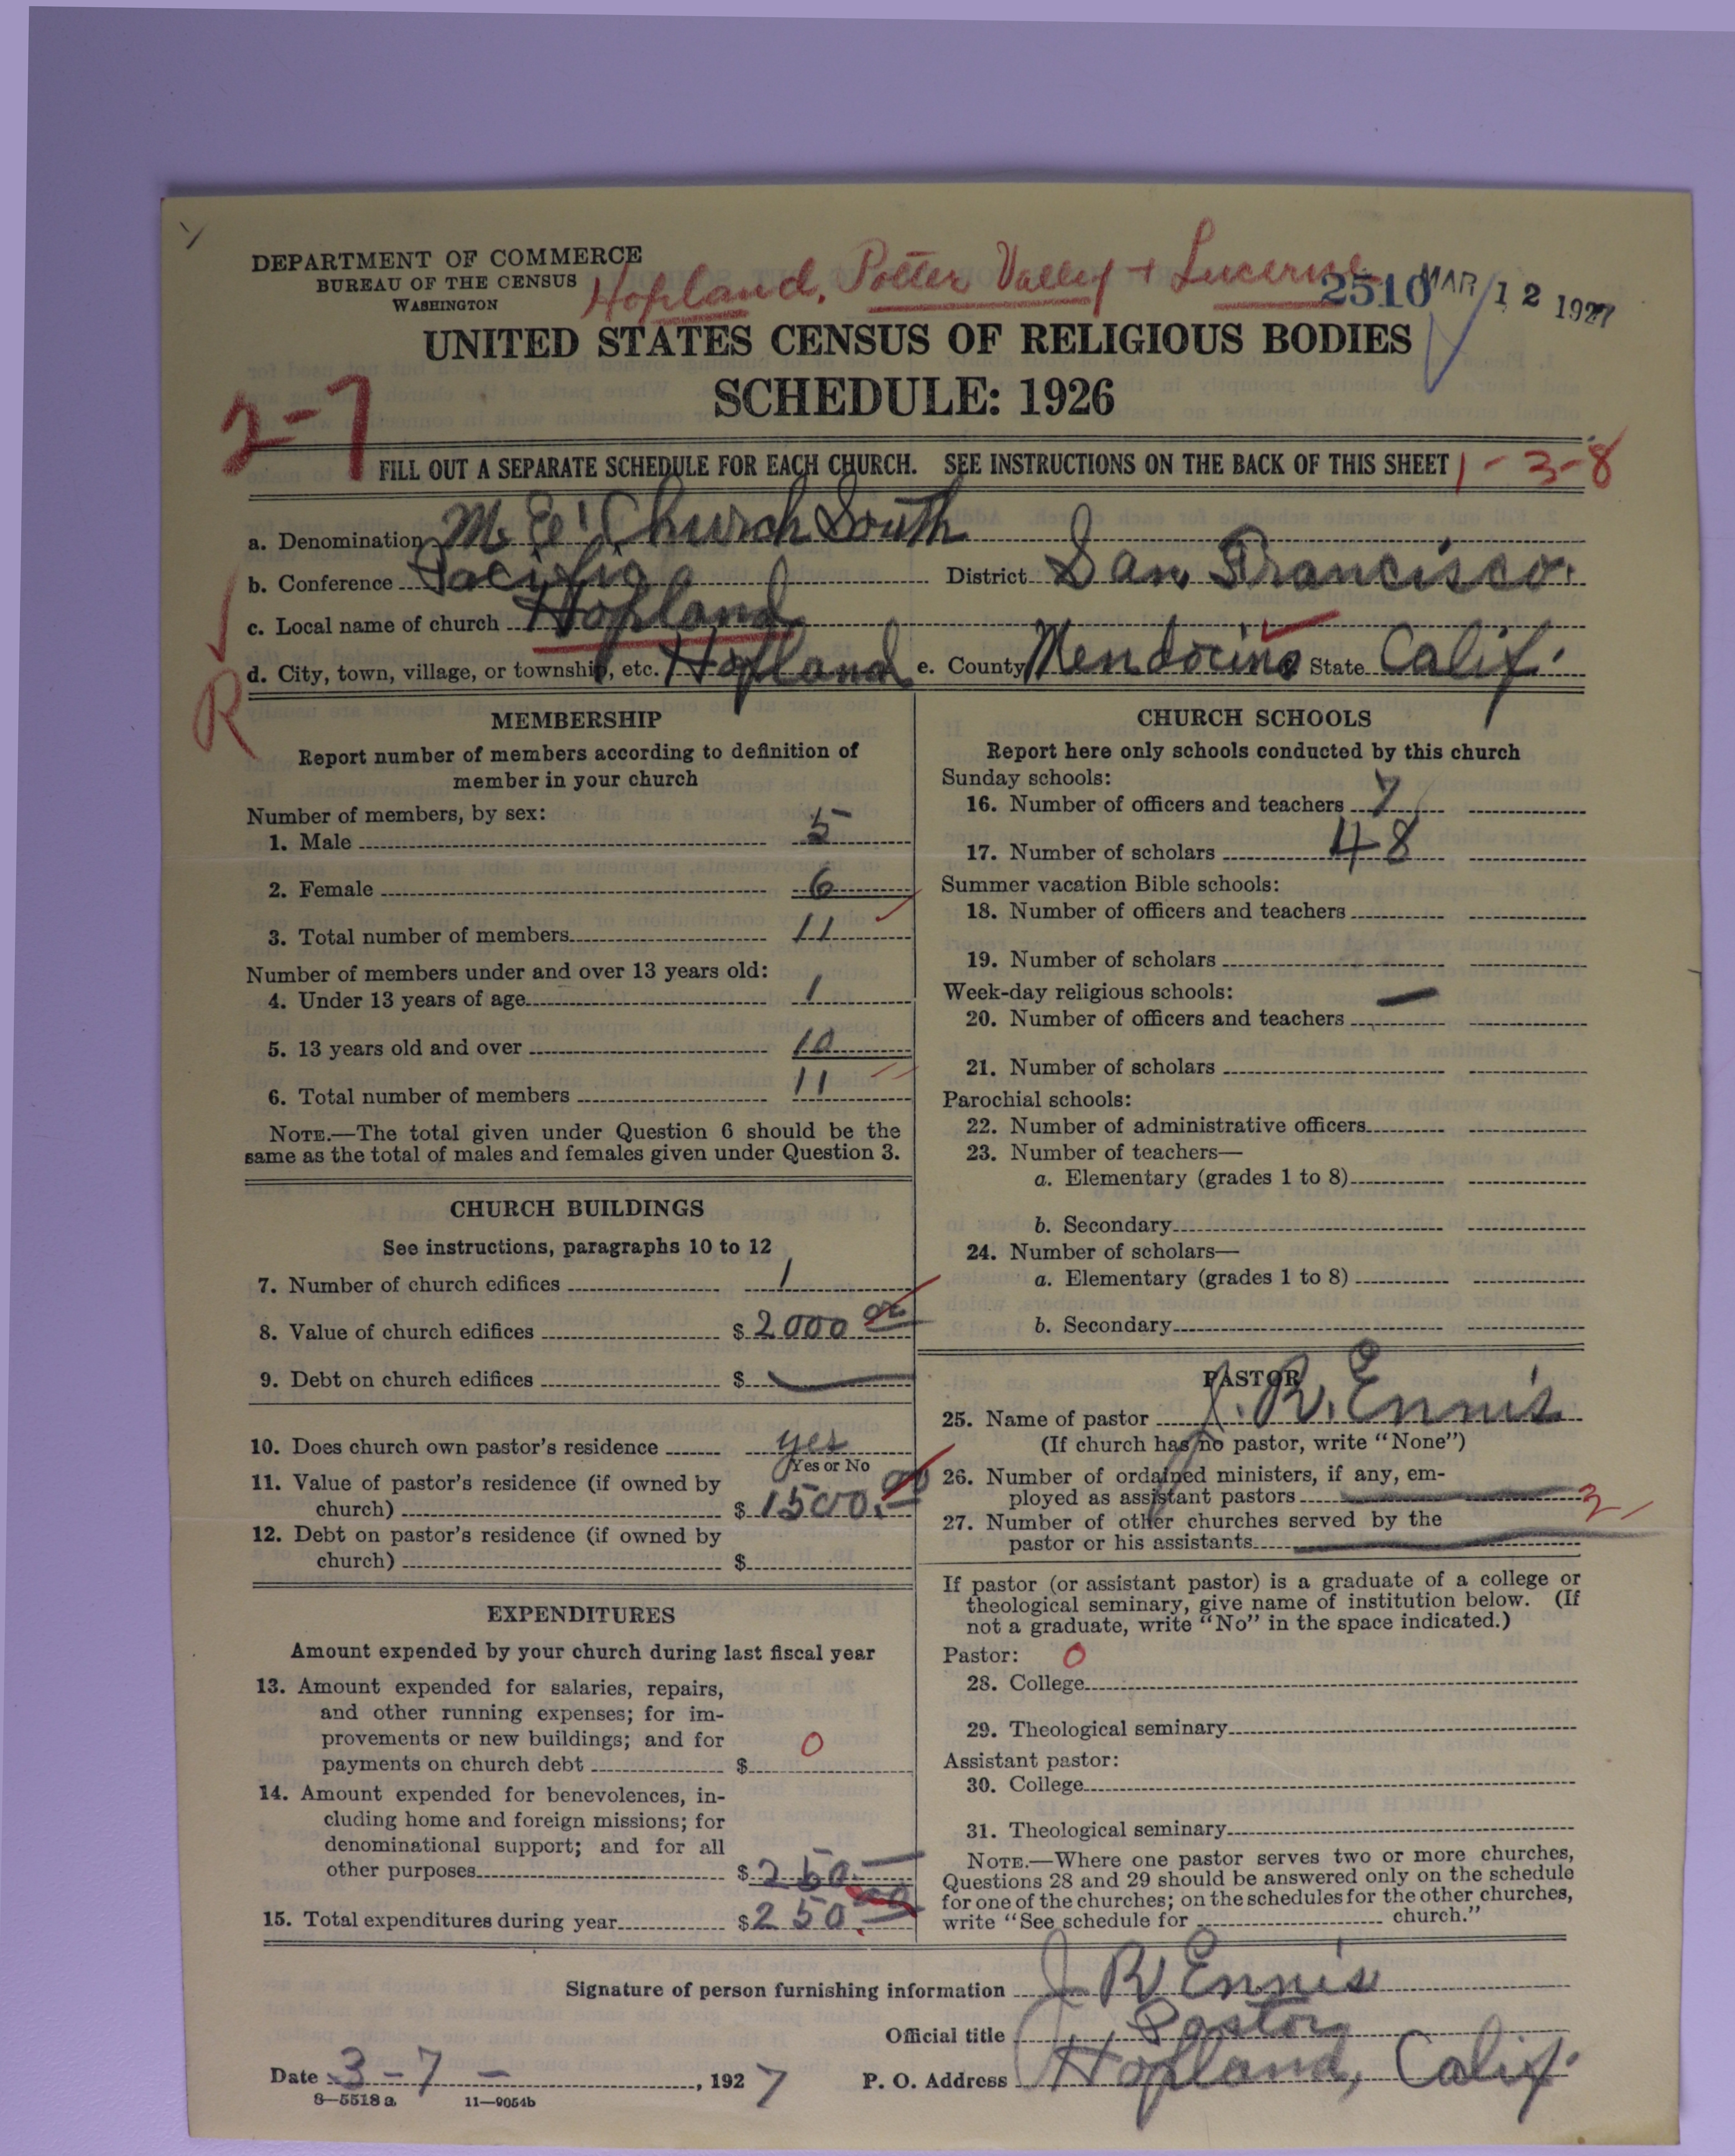 DEPARTMENT OF COMMERCE
BUREAU OF THE CENSUS
WASHINGTON
Hopland, Potter Valley + Lucerne
2510
MAR 12 1927
UNITED STATES CENSUS OF RELIGIOUS BODIES
SCHEDULE: 1926
2-7
FILL OUT A SEPARATE SCHEDULE FOR EACH CHURCH. SEE INSTRUCTIONS ON THE BACK OF THIS SHEET
1-3-8
a. Denomination M. E. Church South
b. Conference Pacific District San Francisco.
c. Local name of church Hopland
d. City, town, village, or township, etc. Hopland e. County Mendocino State Calif.
R
MEMBERSHIP
Report number of members according to definition of
member in your church
Number of members, by sex:
1. Male 5
2. Female 6
3. Total number of members 11
Number of members under and over 13 years old:
4. Under 13 years of age 1
5. 13 years old and over 10
6. Total number of members 11
NOTE.—The total given under Question 6 should be the
same as the total of males and females given under Question 3.
CHURCH BUILDINGS
See instructions, paragraphs 10 to 12
7. Number of church edifices 1
8. Value of church edifices $ 2000 00
9. Debt on church edifices $ —
10. Does church own pastor's residence yes
Yes or No
11. Value of pastor's residence (if owned by
church) $ 1500.00
12. Debt on pastor's residence (if owned by
church) $
EXPENDITURES
Amount expended by your church during last fiscal year
13. Amount expended for salaries, repairs,
and other running expenses; for im-
provements or new buildings; and for
payments on church debt $ 0
14. Amount expended for benevolences, in-
cluding home and foreign missions; for
denominational support; and for all
other purposes $ 250.—
15. Total expenditures during year $ 250.00
CHURCH SCHOOLS
Report here only schools conducted by this church
Sunday schools:
16. Number of officers and teachers 7
17. Number of scholars 48
Summer vacation Bible schools:
18. Number of officers and teachers
19. Number of scholars
Week-day religious schools: —
20. Number of officers and teachers
21. Number of scholars
Parochial schools:
22. Number of administrative officers
23. Number of teachers—
a. Elementary (grades 1 to 8)
b. Secondary
24. Number of scholars—
a. Elementary (grades 1 to 8)
b. Secondary
PASTOR
25. Name of pastor J. R. Ennis
(If church has no pastor, write "None")
26. Number of ordained ministers, if any, em-
ployed as assistant pastors —
27. Number of other churches served by the 2
pastor or his assistants —
If pastor (or assistant pastor) is a graduate of a college or
theological seminary, give name of institution below. (If
not a graduate, write "No" in the space indicated.)
Pastor: 0
28. College
29. Theological seminary
Assistant pastor:
30. College
31. Theological seminary
NOTE.—Where one pastor serves two or more churches,
Questions 28 and 29 should be answered only on the schedule
for one of the churches; on the schedules for the other churches,
write "See schedule for church."
Signature of person furnishing information J R Ennis
Official title Pastor
Date 3-7-, 1927 P. O. Address Hopland, Calif.
8—5518a 11—9054b